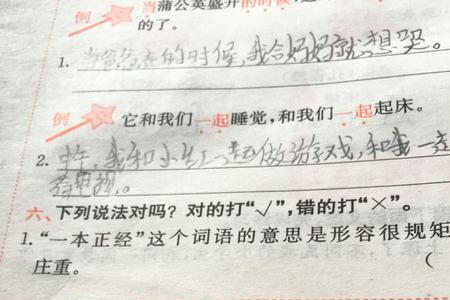 当蒲公英盛开的时候,
的了。
1. 当爸爸走的时候,我合妈妈就想哭。
例 它和我们一起睡觉,和我们一起起床。
2. 中午,我和小红一起做游戏,和我一走
六、下列说法对吗?对的打“√”,错的打“×”。
1.“一本正经”这个词语的意思是形容很规矩
庄重。 (